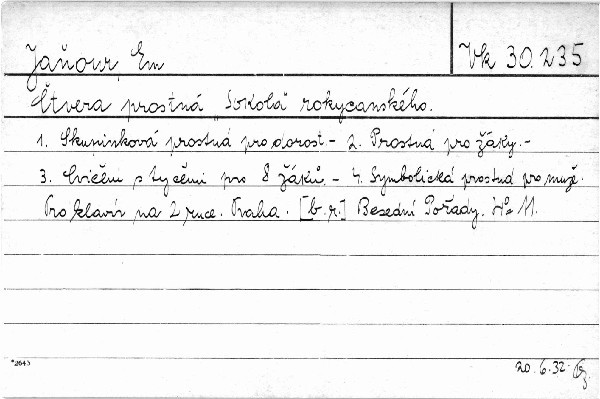 Jaňour, Em
Vk 30.235
Čtvera prostná „Sokola" rokycanského.
1. Skupinková prostná pro dorost. - 2. Prostná pro žáky. -
3. Cvičení s tyčemi pro 8 žáků. - 4. Symbolická prostná pro muže.
Pro klavír na 2 ruce. Praha. [b.r.] Besední Pořady. 4° 11.
*2643
20.6.32.